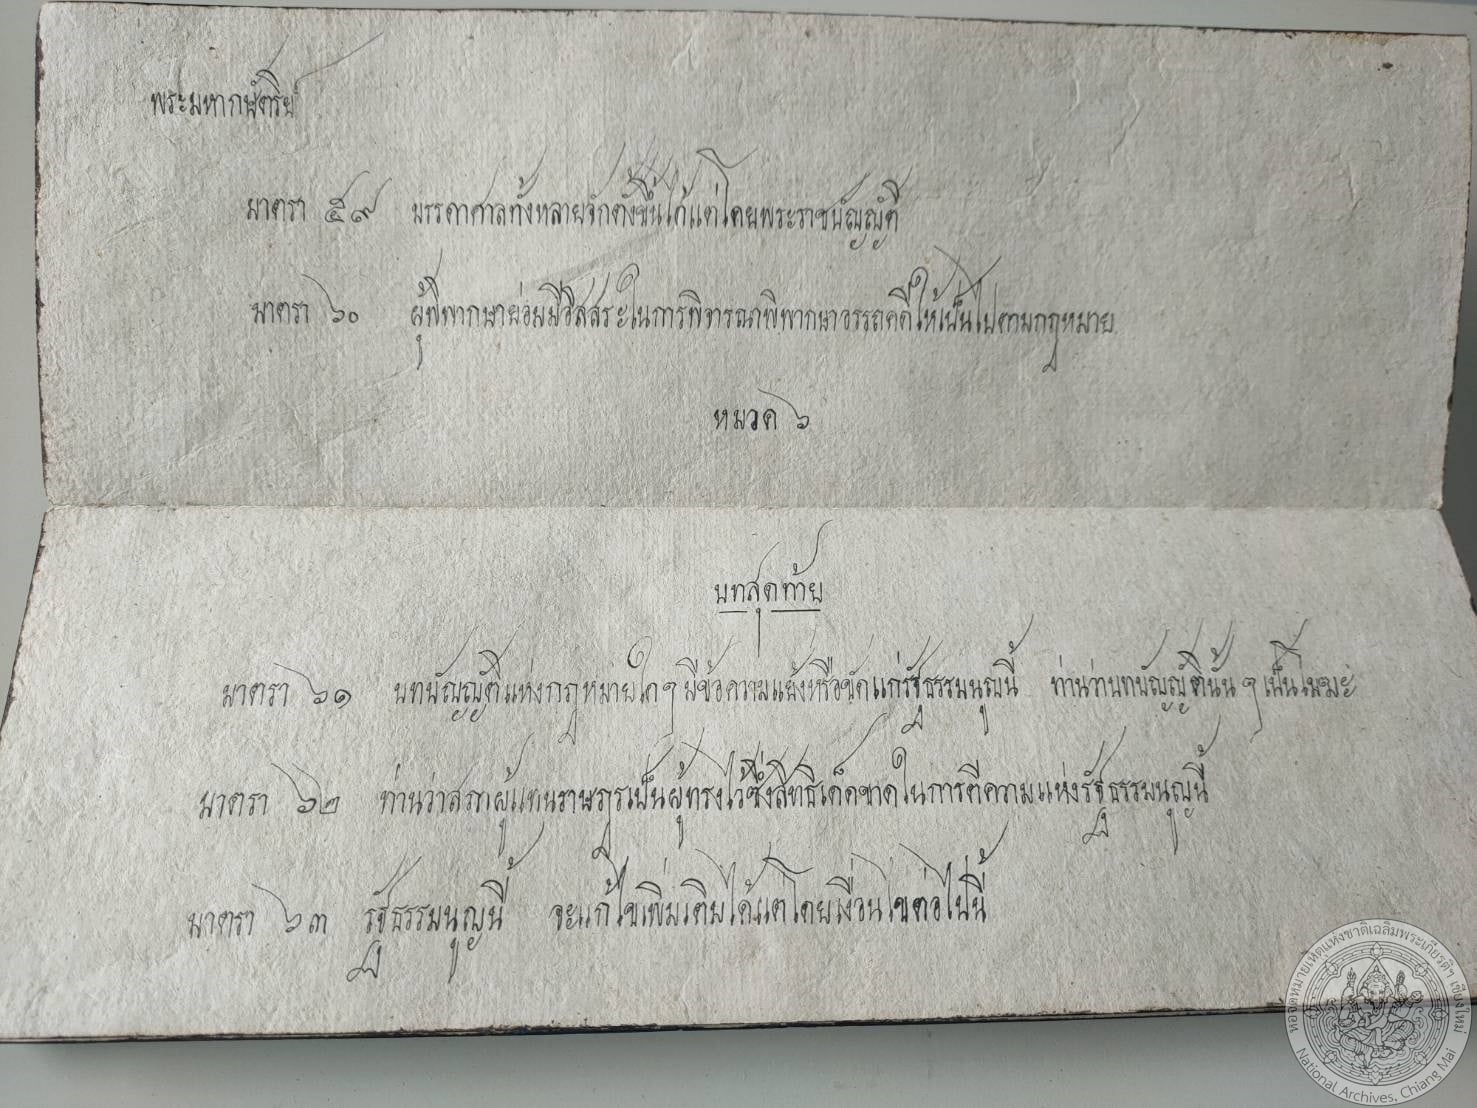 พระมหากษัตริย์
มาตรา ๕๙ บรรดาศาลทั้งหลายจักตั้งขึ้นได้แต่โดยพระราชบัญญัติ
มาตรา ๖๐ ผู้พิพากษาย่อมมีอิสสระในการพิจารณาพิพากษาอรรถคดีให้เป็นไปตามกฎหมาย
หมวด ๖
บทสุดท้าย
มาตรา ๖๑ บทบัญญัติแห่งกฎหมายใด ๆ มีข้อความแย้งหรือขัดแก่รัฐธรรมนูญนี้ ท่านว่าบทบัญญัตินั้น ๆ เป็นโมฆะ
มาตรา ๖๒ ท่านว่าสภาผู้แทนราษฎรเป็นผู้ทรงไว้ซึ่งสิทธิเด็ดขาดในการตีความแห่งรัฐธรรมนูญนี้
มาตรา ๖๓ รัฐธรรมนูญนี้ จะแก้ไขเพิ่มเติมได้แต่โดยเงื่อนไขต่อไปนี้
หอจดหมายเหตุแห่งชาติเฉลิมพระเกียรติฯ เชียงใหม่
National Archives, Chiang Mai